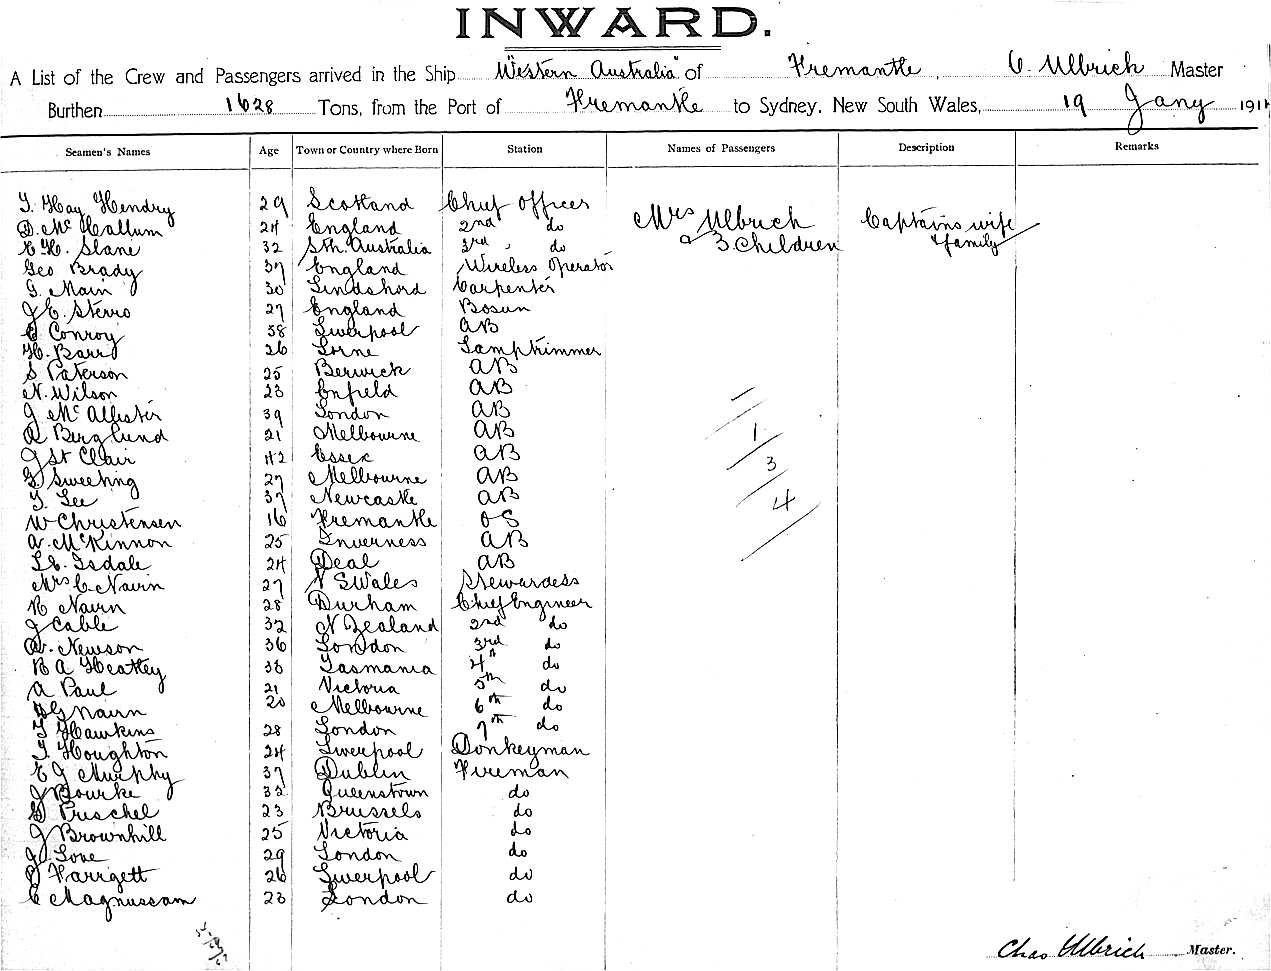 INWARD.
A List of the Crew and Passengers arrived in the Ship "Western Australia" of Fremantle, C. Ulbrich Master
Burthen 1628 Tons, from the Port of Fremantle to Sydney, New South Wales, 19 Jany 191
Seamen's Names Age Town or Country where Born Station Names of Passengers Description Remarks
T. Hay Hendry 29 Scotland Chief Officer
D. McCallum 24 England 2nd do Mrs Ulbrich Captains wife
C H. Slane 32 Sth. Australia 3rd do 3 Children & family
Geo Brady 37 England Wireless Operator
G. Main 30 Carpenter
J C. Sterro 27 England Bosun
Conroy 38 Liverpool AB
H. Barr 26 Lorne Lamptrimmer
S Paterson 25 Berwick AB
N. Wilson 23 Enfield AB
J McAllister 39 London AB
A Berglund 21 Melbourne AB 1
J St Clair 42 Essex AB 3
G Sweeting 27 Melbourne AB
T. Lee 37 Newcastle AB 4
W Christensen 16 Fremantle OS
A. McKinnon 25 Inverness AB
Isdale 24 Deal AB
Mrs C. Navin 27 N S Wales Stewardess
R Nairn 28 Durham Chief Engineer
J Cable 32 N Zealand 2nd do
W. Newson 36 London 3rd do
R A Heatley 38 Tasmania 4th do
A Paul 21 Victoria 5th do
Nairn 20 Melbourne 6th do
T Hawkins 28 London 7th do
T. Houghton 24 Liverpool Donkeyman
E J Murphy 37 Dublin Fireman
J Bourke 32 Queenstown do
G Pruschel 23 Brussels do
J Brownhill 25 Victoria do
J. Love 29 London do
J Farrgett 26 Liverpool do
C Magnussam 23 London do
Chas Ulbrich Master.